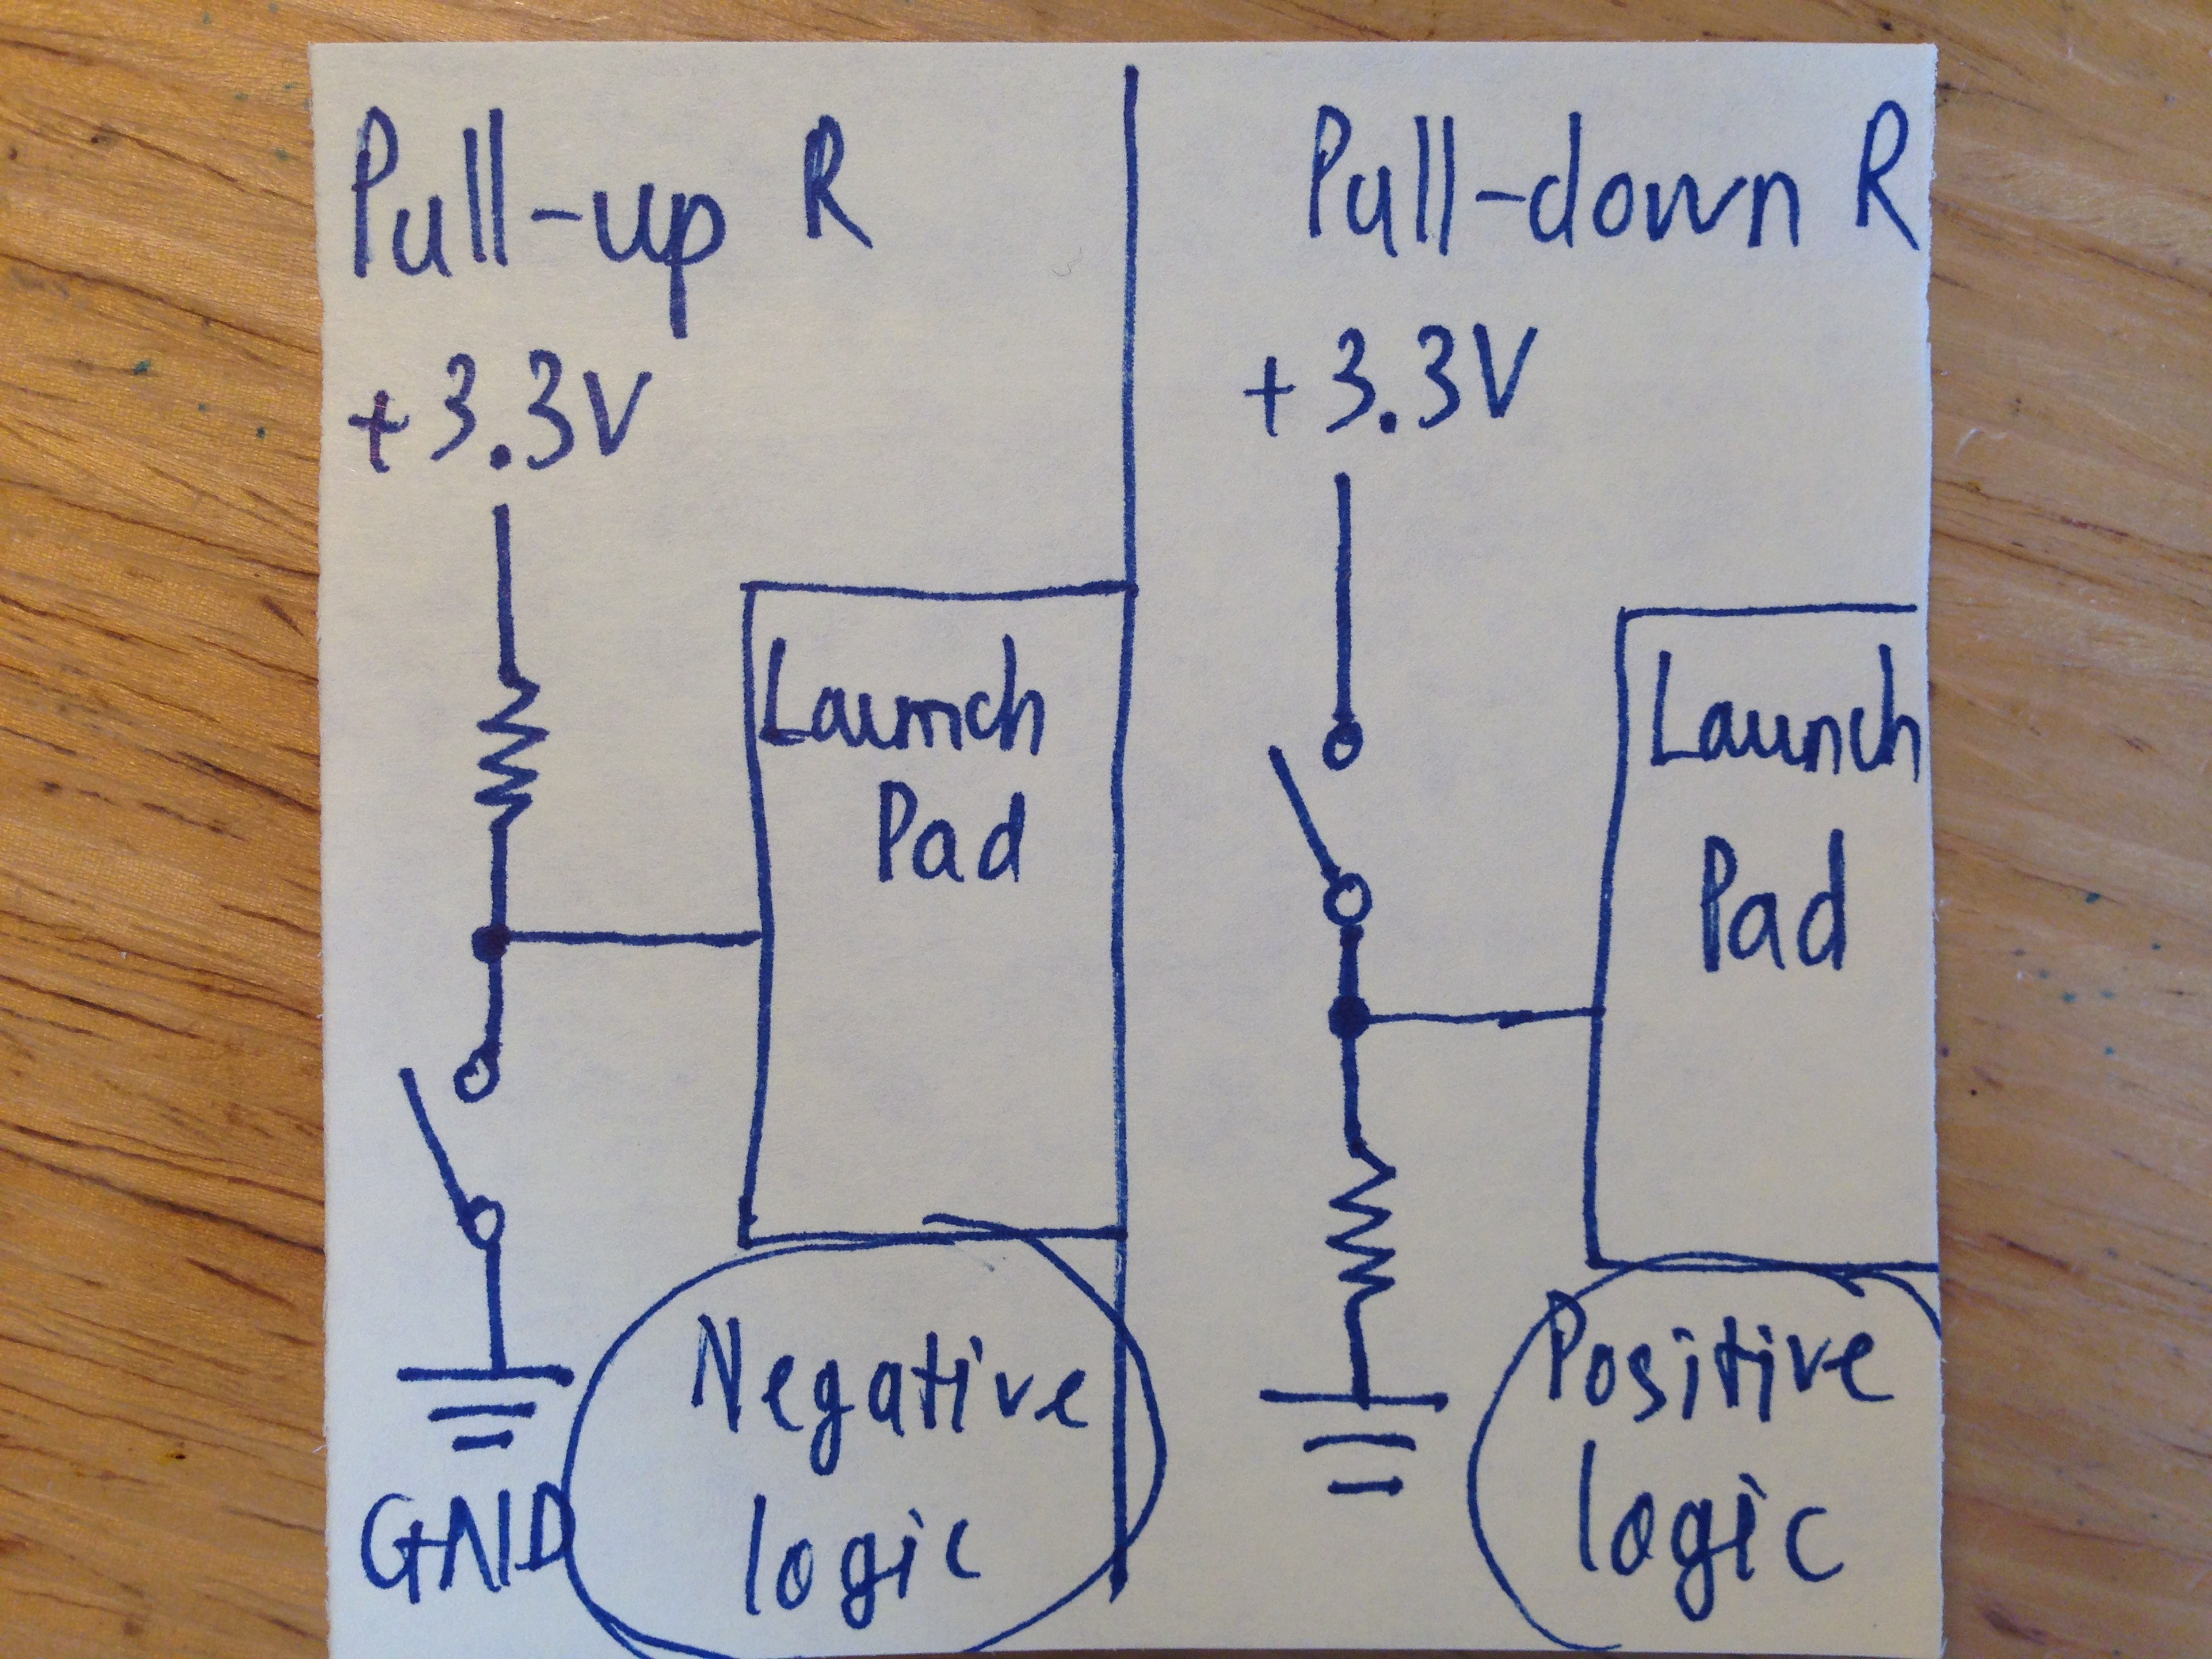 Pull-up R
+3.3V
Launch
Pad
GND
Negative
logic
Pull-down R
+3.3V
Launch
Pad
Positive
logic